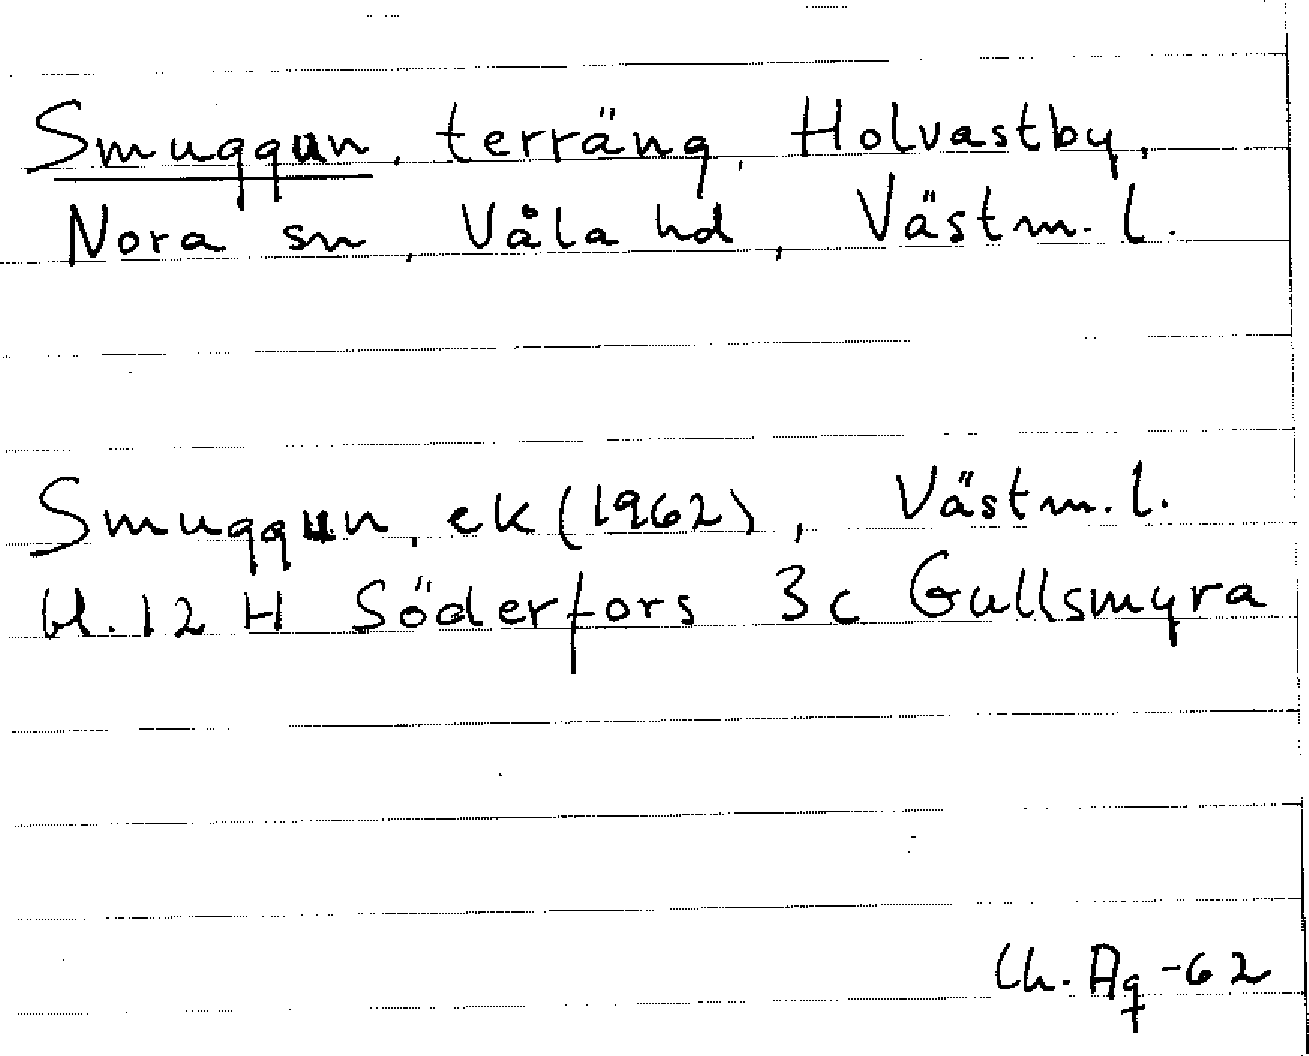 Smuggun, terräng, Holvastby,
Nora sn, Våla hd, Västm. l.
Smuggun, ek (1962), Västm. l.
bl. 12 H Söderfors 3c Gullsmyra
-62